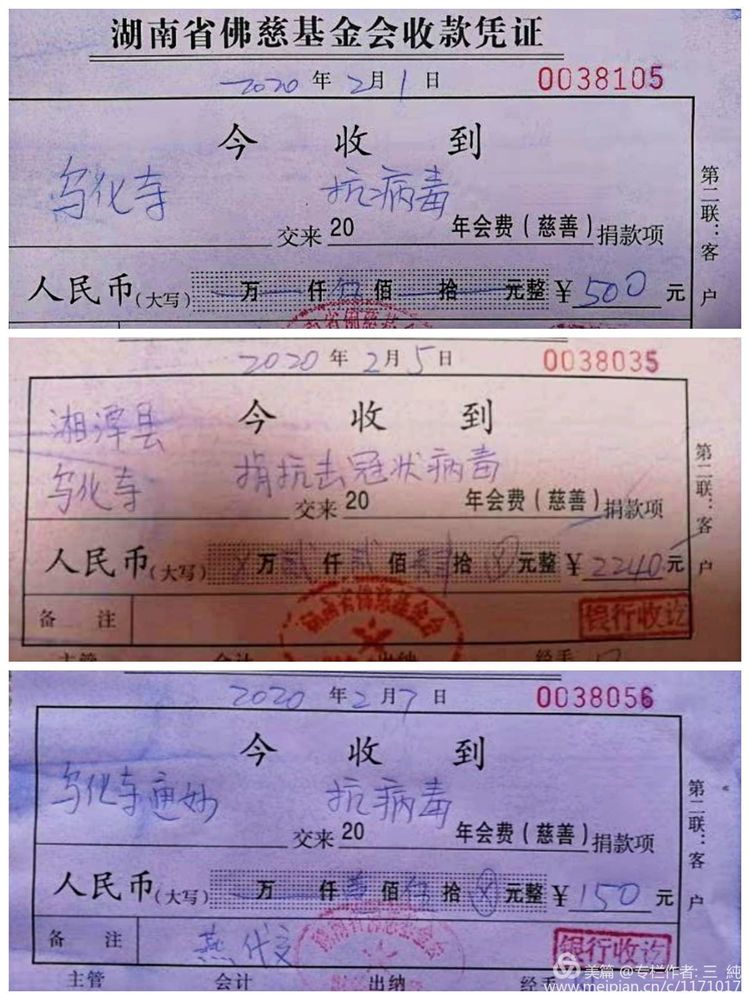 湖南省佛慈基金会收款凭证
2020 年 2 月 1 日 0038105
今收到
乌化寺 抗病毒
交来 20 年会费(慈善)捐款项
人民币(大写) 万 仟 伍 佰 拾 元整 ¥ 500 元
第二联：客户
湖南省佛慈基金会
2020 年 2 月 5 日 0038035
今收到
湘潭县
乌化寺 捐抗击冠状病毒
交来 20 年会费(慈善)捐款项
人民币(大写) 万 贰 仟 贰 佰 肆 拾 元整 ¥ 2240 元
备注
湖南省佛慈基金会
银行收讫
主管 会计 出纳 经手
第二联：客户
2020 年 2 月 7 日 0038056
今收到
乌化寺通妙 抗病毒
交来 20 年会费(慈善)捐款项
人民币(大写) 万 仟 壹 佰 伍 拾 元整 ¥ 150 元
备注 燕代交
湖南省佛慈基金会
银行收讫
主管 会计 出纳 经手
第二联：客户
美篇 @专栏作者: 三 純
www.meipian.cn/c/1171017